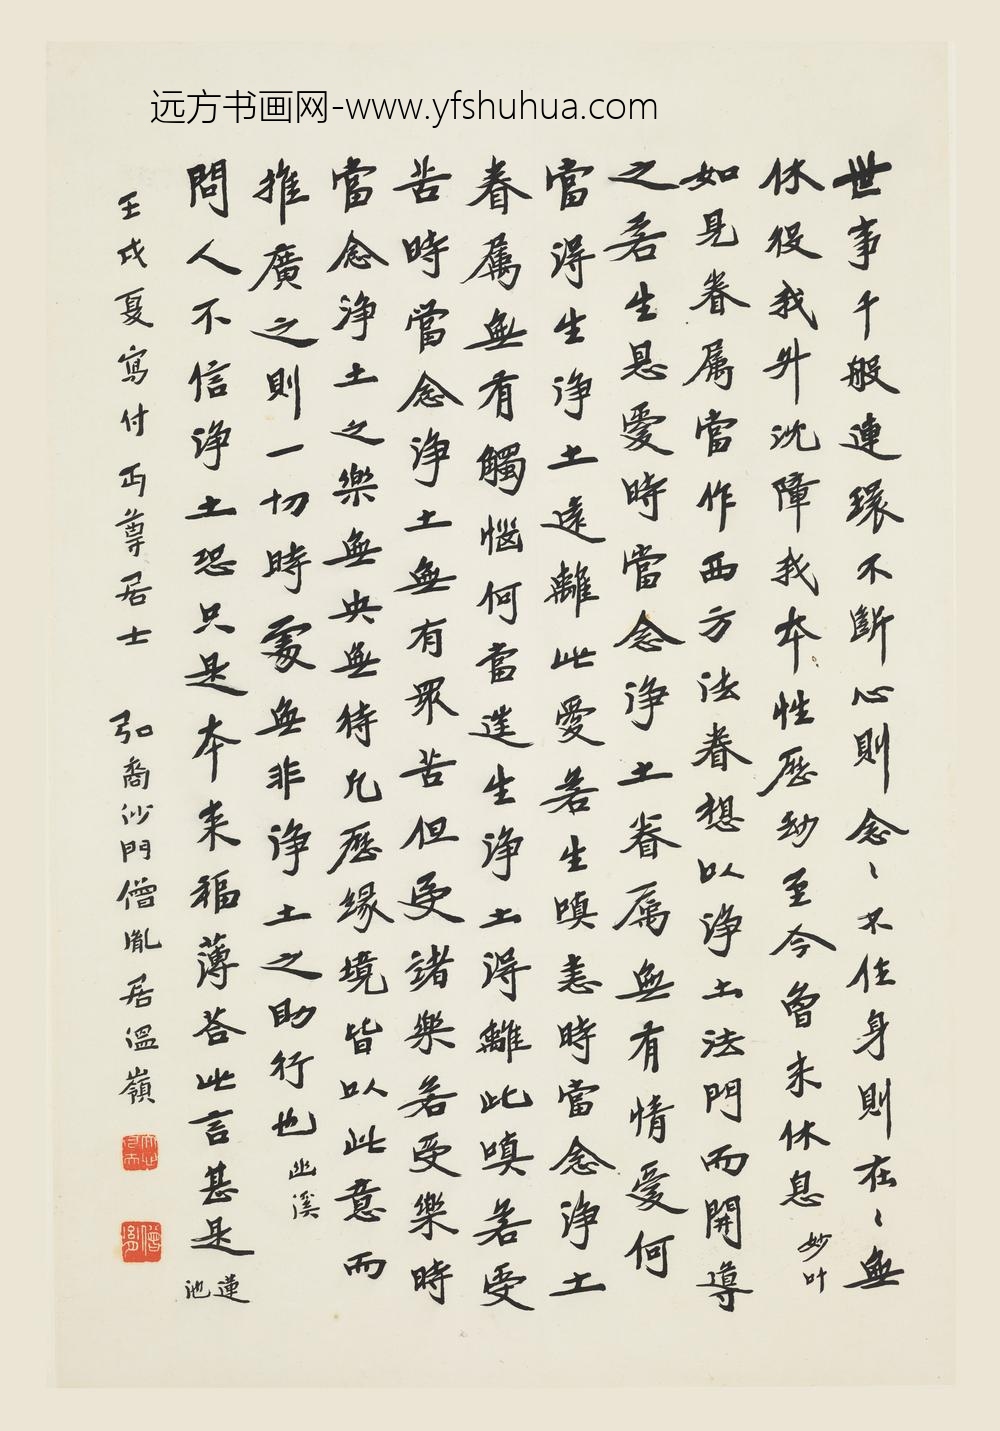 远方书画网-www.yfshuhua.com
世事千般連環不斷心則念〻不住身則在〻無
休役我升沈障我本性歷劫至今曾未休息 妙叶
如見眷屬當作西方法眷想以淨土法門而開導
之若生恩愛時當念淨土眷屬無有情愛何
當得生淨土遠離此愛若生嗔恚時當念淨土
眷屬無有觸惱何當遠生淨土得離此嗔若受
苦時當念淨土無有眾苦但受諸樂若受樂時
當念淨土之樂無央無待凡歷緣境皆以此意而
推廣之則一切時處無非淨土之助行也 幽溪
問人不信淨土恐只是本來福薄荅此言甚是 蓮池
壬戌夏寫付丏尊居士 弘裔沙門僧胤居溫嶺